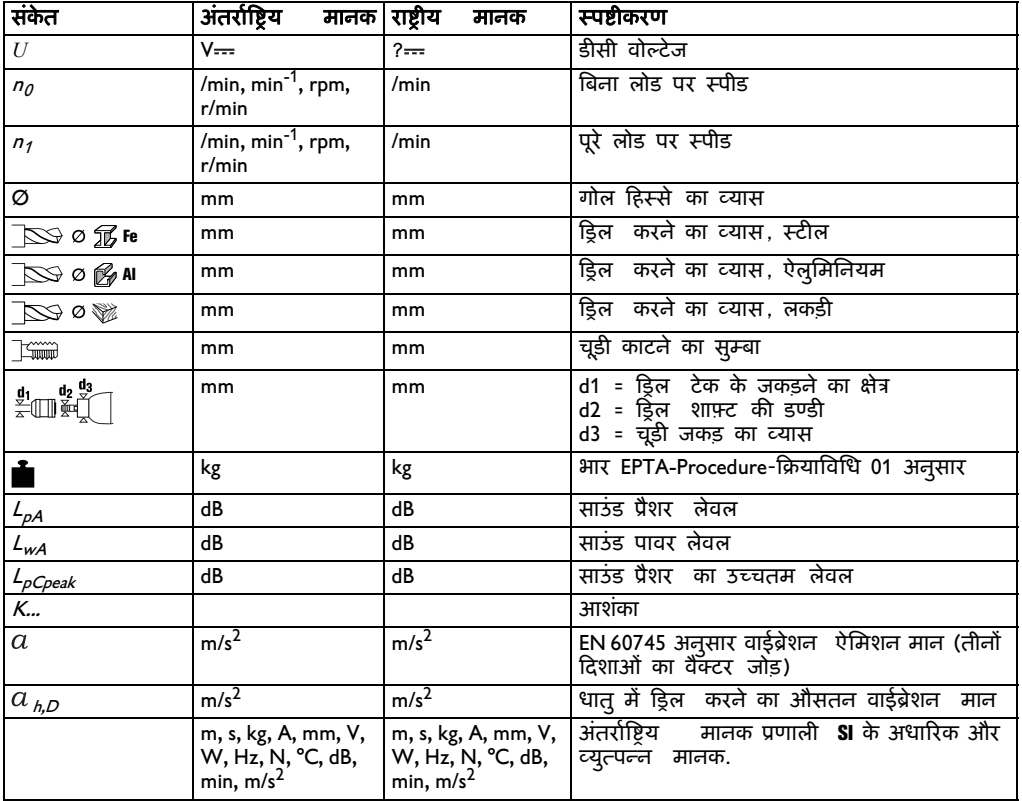 संकेत अंतर्राष्ट्रिय मानक राष्ट्रीय मानक स्पष्टीकरण
U V⎓ ?⎓ डीसी वोल्टेज
n0 /min, min-1, rpm, /min बिना लोड पर स्पीड
r/min
n1 /min, min-1, rpm, /min पूरे लोड पर स्पीड
r/min
Ø mm mm गोल हिस्से का व्यास
Ø Fe mm mm ड्रिल करने का व्यास, स्टील
Ø Al mm mm ड्रिल करने का व्यास, ऐलुमिनियम
Ø mm mm ड्रिल करने का व्यास, लकड़ी
mm mm चूड़ी काटने का सुम्बा
d1 d2 d3 mm mm d1 = ड्रिल टेक के जकड़ने का क्षेत्र
d2 = ड्रिल शाफ़्ट की डण्डी
d3 = चूड़ी जकड़ का व्यास
kg kg भार EPTA-Procedure-क्रियाविधि 01 अनुसार
LpA dB dB साउंड प्रैशर लेवल
LwA dB dB साउंड पावर लेवल
LpCpeak dB dB साउंड प्रैशर का उच्चतम लेवल
K... आशंका
a m/s2 m/s2 EN 60745 अनुसार वाईब्रेशन ऐमिशन मान (तीनों
दिशाओं का वैक्टर जोड़)
a h,D m/s2 m/s2 धातु में ड्रिल करने का औसतन वाईब्रेशन मान
m, s, kg, A, mm, V, m, s, kg, A, mm, V, अंतर्राष्ट्रिय मानक प्रणाली SI के अधारिक और
W, Hz, N, °C, dB, W, Hz, N, °C, dB, व्युत्पन्न मानक.
min, m/s2 min, m/s2